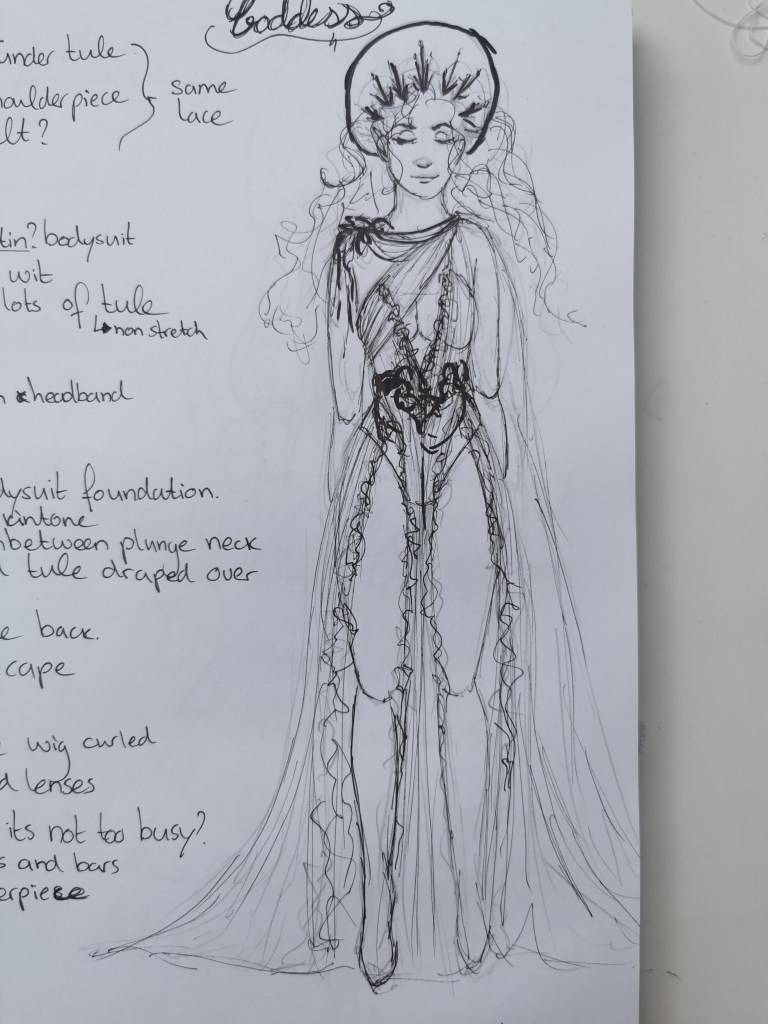 Goddess
under tule
shoulderpiece
same
lace
lt?
tin? bodysuit
wit
lots of tule
↳ non stretch
headband
dysuit foundation.
kintone
between plunge neck
tule draped over
e back.
cape
wig curled
d lenses
its not too busy?
s and bars
erpiece